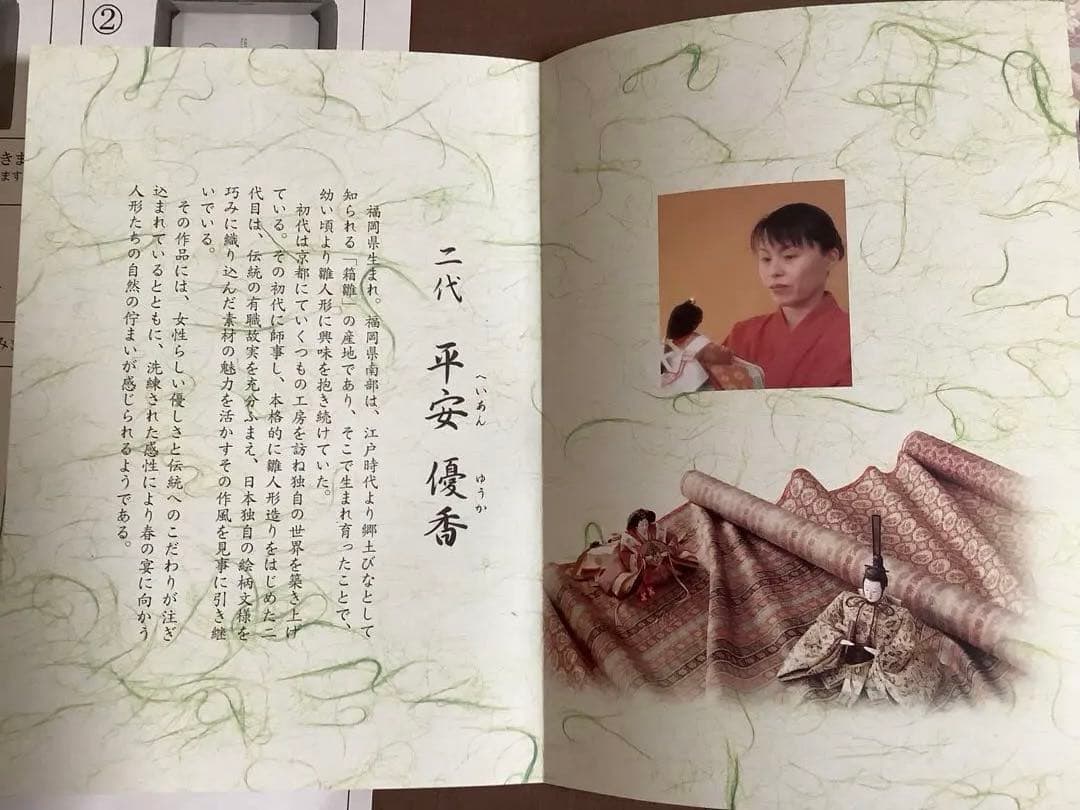 二代 平安 優香
へいあん ゆうか
福岡県生まれ。福岡県南部は、江戸時代より郷土びなとして
知られる「箱雛」の産地であり、そこで生まれ育ったことで、
幼い頃より雛人形に興味を抱き続けていた。
初代は京都にていくつもの工房を訪ね独自の世界を築き上げ
ている。その初代に師事し、本格的に雛人形造りをはじめた二
代目は、伝統の有職故実を充分ふまえ、日本独自の絵柄文様を
巧みに織り込んだ素材の魅力を活かすその作風を見事に引き継
いでいる。
その作品には、女性らしい優しさと伝統へのこだわりが注ぎ
込まれているとともに、洗練された感性により春の宴に向かう
人形たちの自然の佇まいが感じられるようである。
②
きま
ます